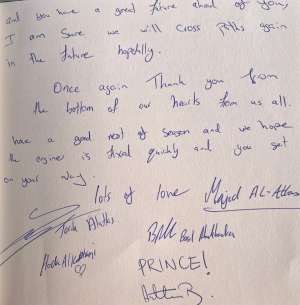 and you have a great future ahead of you,
I am sure we will cross paths again
in the future hopefully.
Once again Thank you from
the bottom of our hearts from us all.
have a good rest of season and we hope
the engine is fixed quickly and you get
on your way.
lots of love
Majid AL-Attas
Bill
PRINCE!